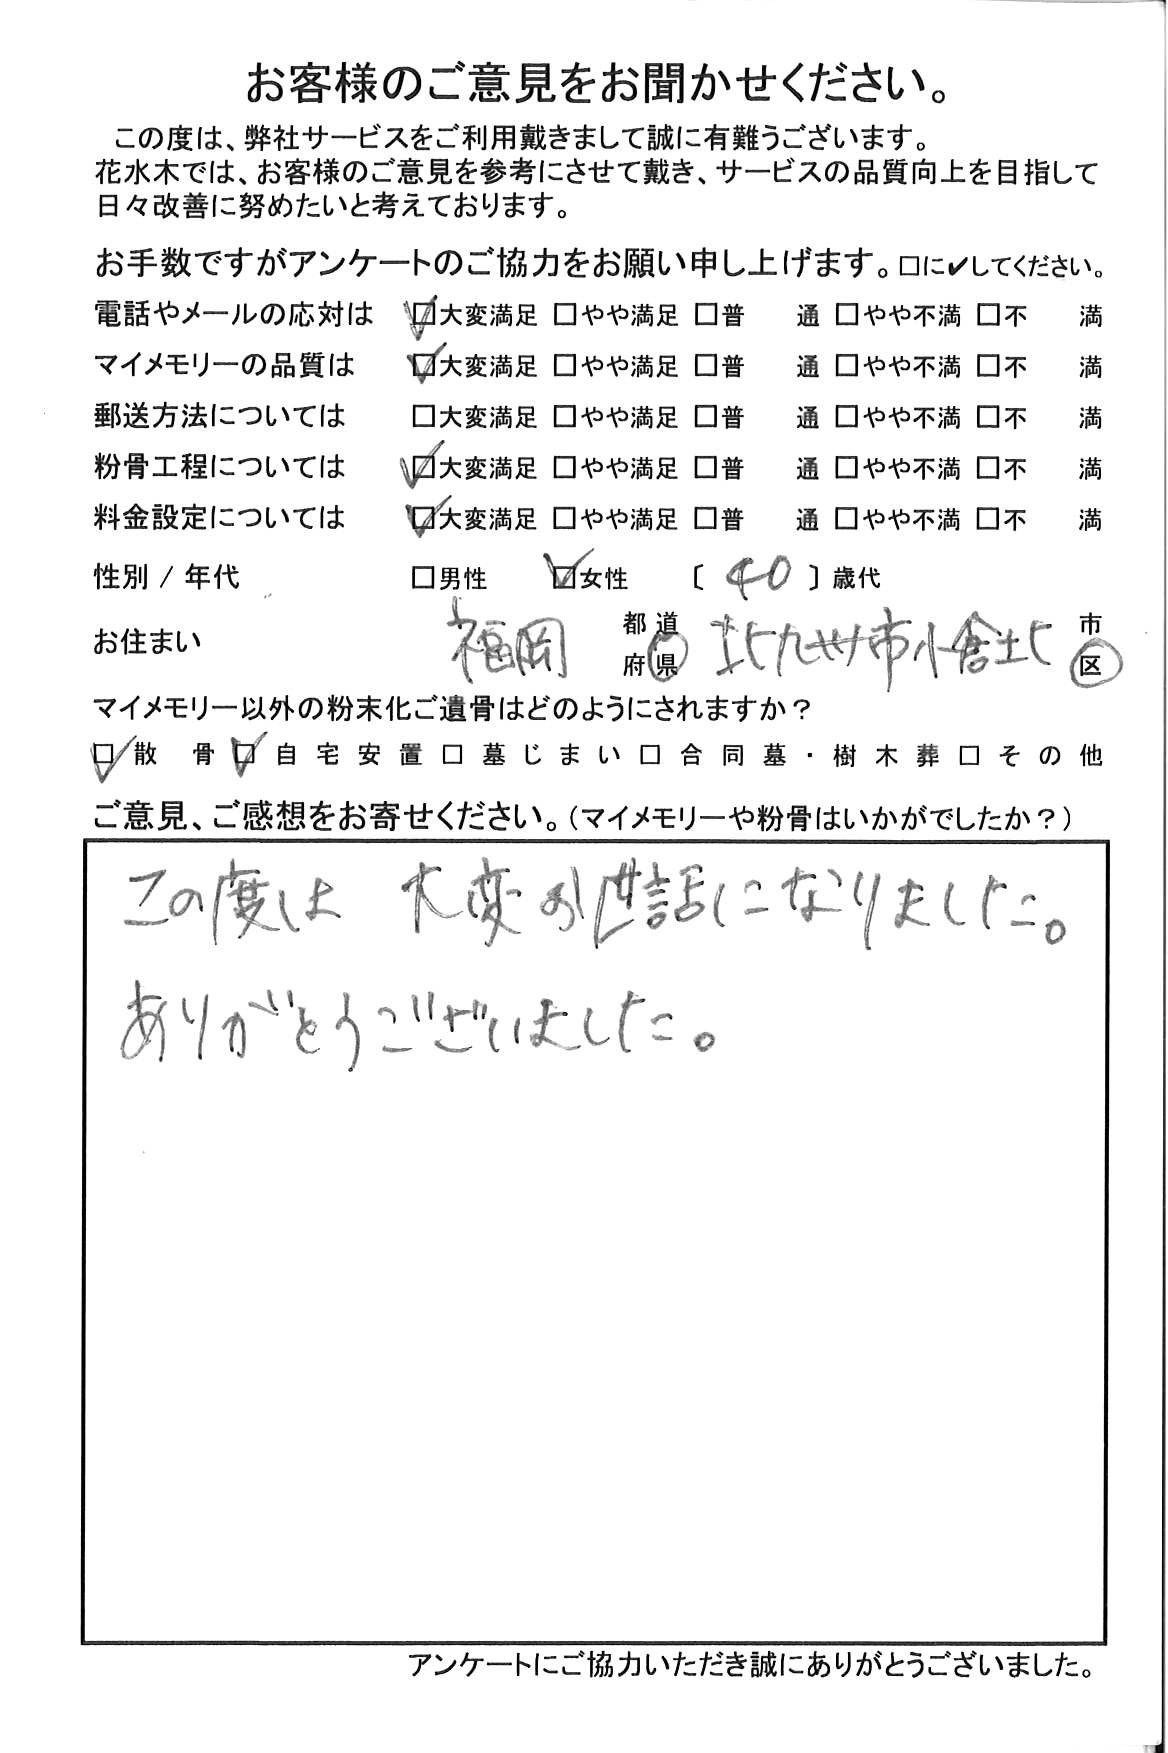 お客様のご意見をお聞かせください。
この度は、弊社サービスをご利用戴きまして誠に有難うございます。
花水木では、お客様のご意見を参考にさせて戴き、サービスの品質向上を目指して
日々改善に努めたいと考えております。
お手数ですがアンケートのご協力をお願い申し上げます。□に✔してください。
電話やメールの応対は ☑大変満足 □やや満足 □普 通 □やや不満 □不 満
マイメモリーの品質は ☑大変満足 □やや満足 □普 通 □やや不満 □不 満
郵送方法については □大変満足 □やや満足 □普 通 □やや不満 □不 満
粉骨工程については ☑大変満足 □やや満足 □普 通 □やや不満 □不 満
料金設定については ☑大変満足 □やや満足 □普 通 □やや不満 □不 満
性別 / 年代 □男性 ☑女性 〔 40 〕歳代
お住まい 福岡 都道府県 北九州市小倉北 市区
マイメモリー以外の粉末化ご遺骨はどのようにされますか？
☑散 骨 ☑自宅安置 □墓じまい □合同墓・樹木葬 □その他
ご意見、ご感想をお寄せください。（マイメモリーや粉骨はいかがでしたか？）
この度は 大変お世話になりました。
ありがとうございました。
アンケートにご協力いただき誠にありがとうございました。